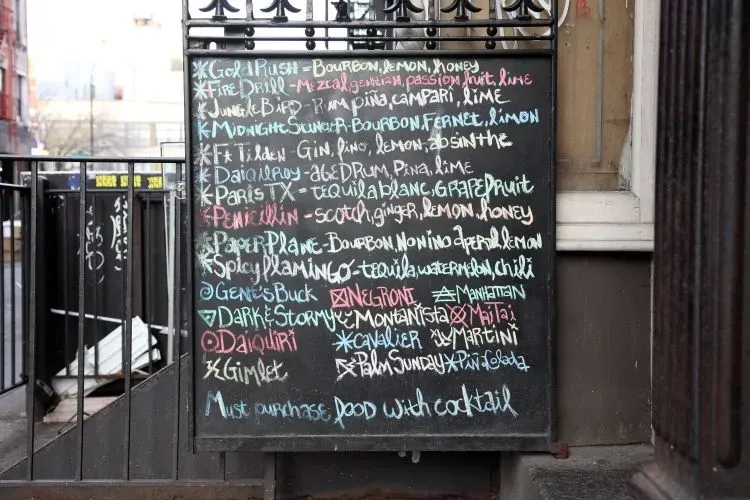 *Gold Rush = Bourbon, lemon, honey
*Fire Drill - Mezcal, gentian, passion fruit, lime
*Jungle Bird - Rum, piña, campari, lime
*Midnight Stinger - Bourbon, Fernet, limon
*F* Tilden - Gin, fino, lemon, absinthe
*Daiquilroy - aged rum, Pina, lime
*Paris TX - tequila blanc, grapefruit
*Penicillin - scotch, ginger, lemon, honey
*Paper Plane - Bourbon, Nonino aperol lemon
*Spicy flamingo - tequila, watermelon, chili
Gene's Buck Negroni Manhattan
Dark & Stormy Montanista Mai Tai
Daiquiri *Cavalier Martini
Gimlet Palm Sunday *Piña Colada
Must purchase food with cocktail